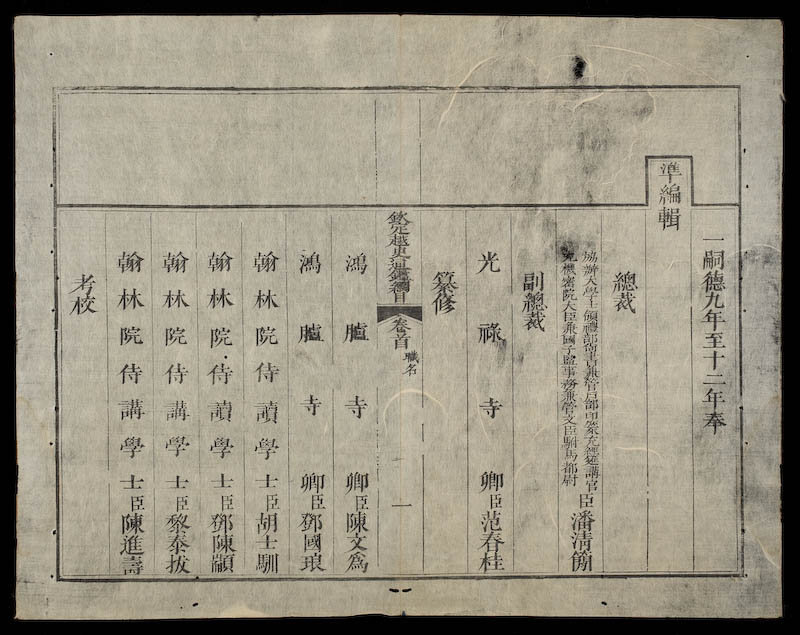 一嗣德九年至十二年奉
準編輯
總裁
協辦大學士領禮部尚書兼管戶部印篆充經筵講官
充機密院大臣兼國子監事務兼管文臣駙馬都尉
臣潘清簡
副總裁
光祿寺卿臣范春桂
纂修
欽定越史通鑑綱目 卷之首 職名 一
鴻臚寺卿臣陳文為
鴻臚寺卿臣鄧國琅
翰林院侍讀學士臣胡士馴
翰林院侍讀學士臣鄧陳顓
翰林院侍講學士臣黎泰拔
翰林院侍講學士臣陳進壽
考校